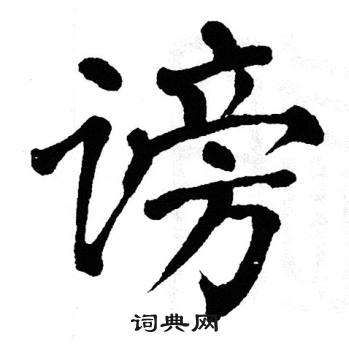 谤
词典网